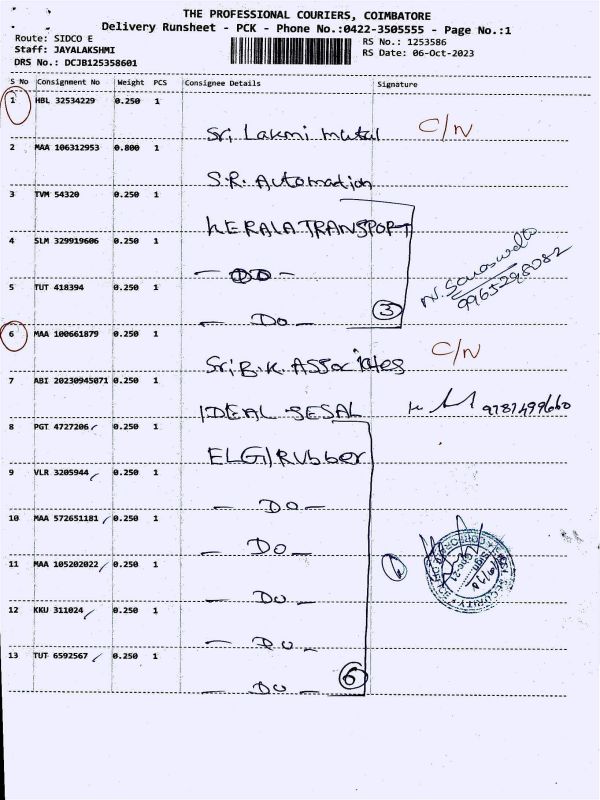 THE PROFESSIONAL COURIERS, COIMBATORE
Delivery Runsheet - PCK - Phone No.:0422-3505555 - Page No.:1
Route: SIDCO E
RS No.: 1253586
Staff: JAYALAKSHMI
RS Date: 06-Oct-2023
DRS No.: DCJB125358601
S No Consignment No Weight PCS Consignee Details Signature
1 HBL 32534229 0.250 1
Sri Lakmi Metal C/N
2 MAA 106312953 0.800 1
S.R. Automation
3 TVM 54320 0.250 1
KERALA TRANSPORT
4 SLM 329919606 0.250 1
— DO —
5 TUT 418394 0.250 1
— Do — 3
6 MAA 100661879 0.250 1
Sri B.K. Associates C/N
7 ABI 20230945071 0.250 1
IDEAL SESAL 9787499660
8 PGT 4727206 0.250 1
ELGI Rubber
9 VLR 3205944 0.250 1
— Do —
10 MAA 572651181 0.250 1
— Do —
11 MAA 105202022 0.250 1
— Do —
12 KKU 311024 0.250 1
— Do —
13 TUT 6592567 0.250 1
— Do — 6